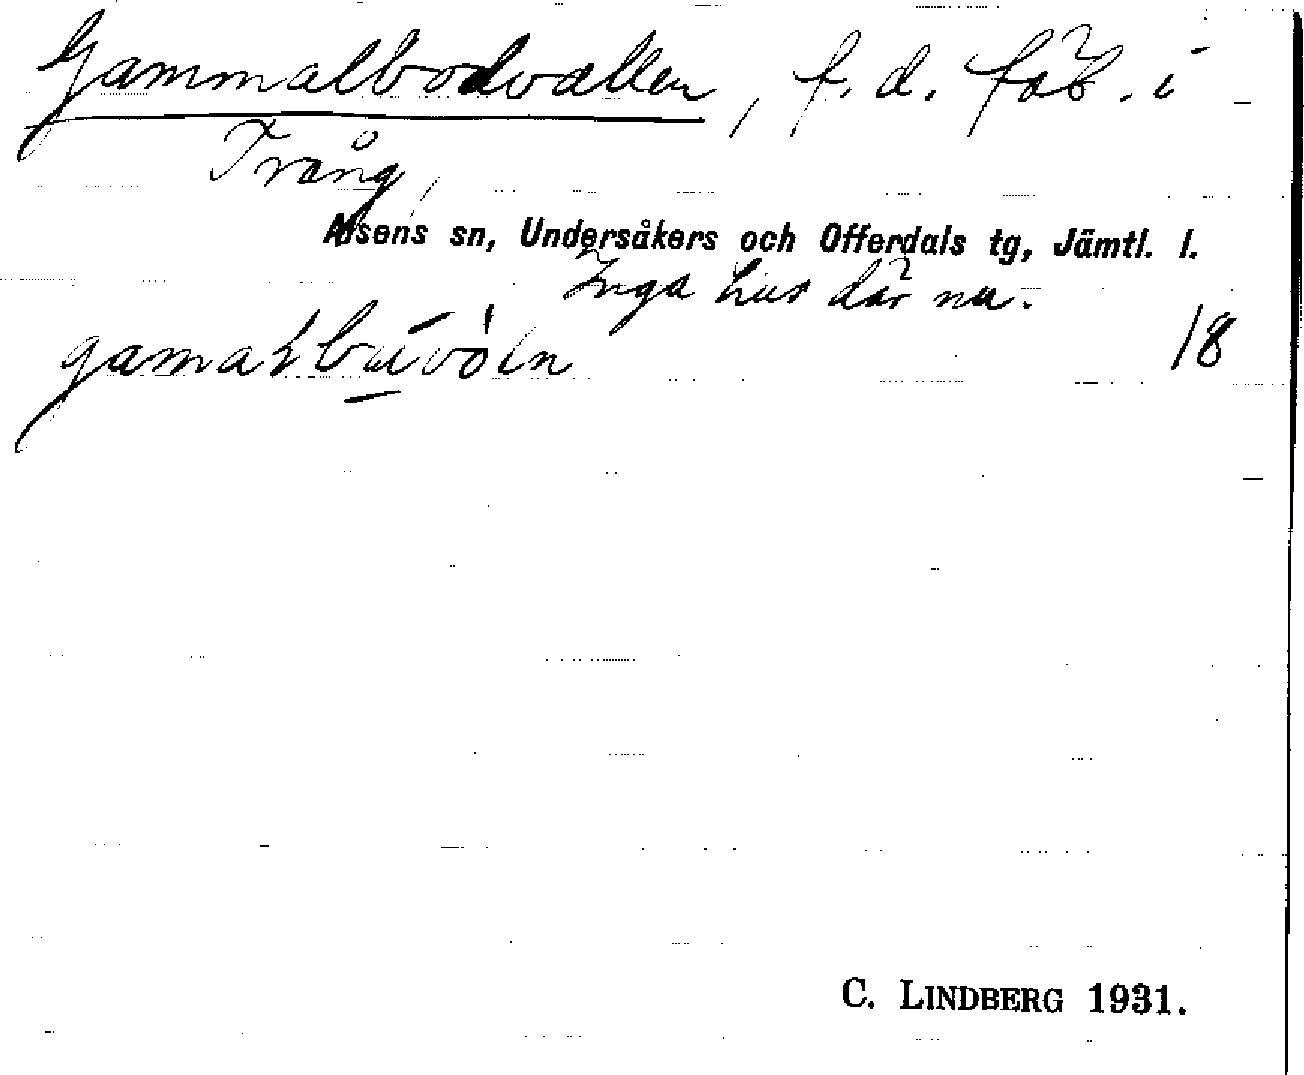 Gammalbodvallen, f. d. fäb. i
Trång,
Alsens sn, Undersåkers och Offerdals tg, Jämtl. l.
Inga hus där nu.
18
C. LINDBERG 1931.